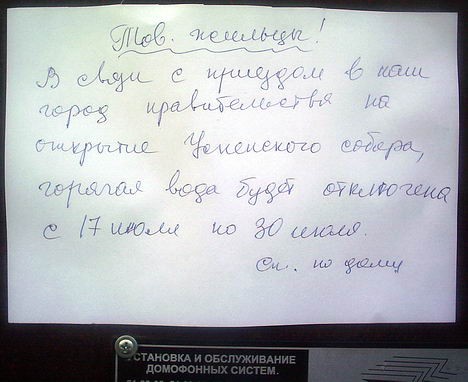 Тов. жильцы!
В связи с приездом в наш
город правительства на
открытие Успенского собора,
горячая вода будет отключена
с 17 июля по 30 июля.
по дому
УСТАНОВКА И ОБСЛУЖИВАНИЕ
ДОМОФОННЫХ СИСТЕМ.